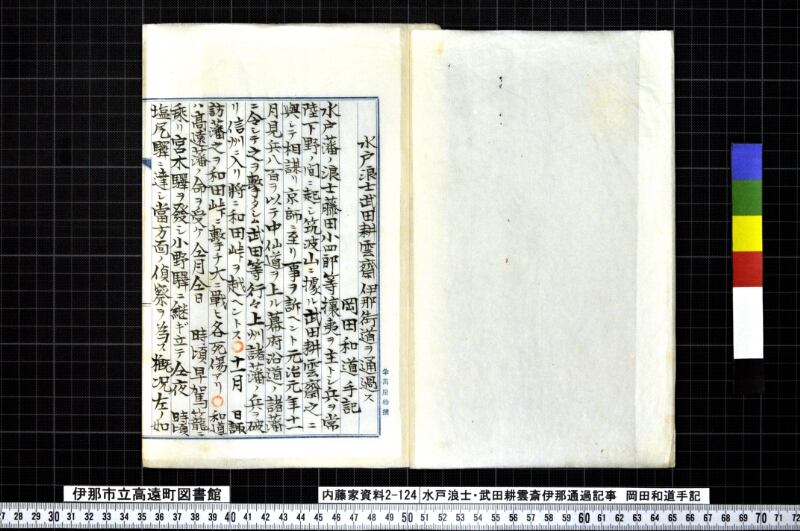 水戸浪士武田耕雲齋伊那街道ヲ通過ス
岡田和道手記
水戸藩ノ浪士藤田小四郎等攘夷ヲ主トシ兵ヲ常
陸下野ノ間ニ起シ筑波山ニ據ル武田耕雲齋之ニ
與シテ相謀リ京師ニ至リ事ヲ訴ヘント元治元年十一
月見兵八百ヲ以テ中仙道ヲ上ル幕府沿道ノ諸藩
ニ令シテ之ヲ擊タシム武田等行々上州諸藩ノ兵ヲ破
リ信州ニ入リ將ニ和田峠ヲ越ヘントス○十一月 日諏
訪藩之ヲ和田峠ニ擊チ大ニ戰ヒ各死傷アリ○和道
ハ高遠藩ノ命ヲ受ケ仝月仝日 時頃早駕籠ニ
乘リ宮木驛ヲ發シ小野驛ニ継ギ立テ仝夜 時頃
塩尻驛ニ達シ當方面ノ偵察ヲ為ス概况左ノ如
伊那市立高遠町図書館
内藤家資料2-124 水戸浪士・武田耕雲斎伊那通過記事 岡田和道手記
27 28 29 30 31 32 33 34 35 36 37 38 39 40 41 42 43 44 45 46 47 48 49 50 51 52 53 54 55 56 57 58 59 60 61 62 63 64 65 66 67 68 69 70 71 72